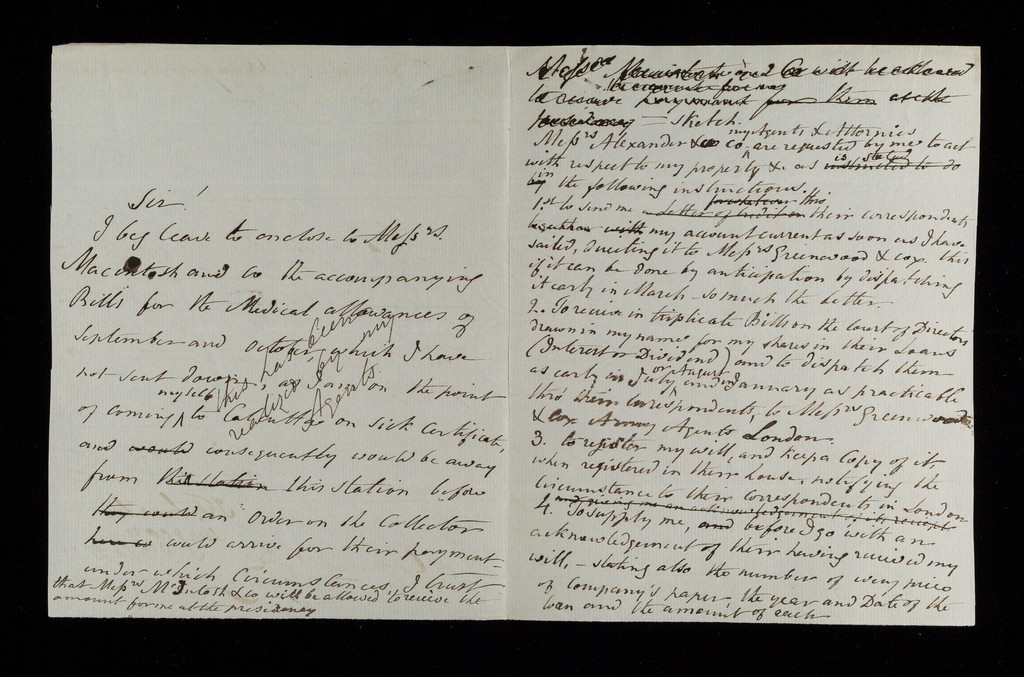 Sir!
I beg leave to enclose to Messrs.
Macintosh and Co the accompanying
Bills for the Medical allowances of
September and October, which I have
not sent down, as I am on the point
of coming myself to Calcutta on sick certificate,
and would consequently would be away
from this station this station before
they would an order on the Collector
here would arrive for their payment—
under which circumstances, I trust
that Messrs McIntosh & co will be allowed to receive the
amount for me at the presidency
this has been
realized by my
Agents
Messrs and Co will be allowed
to receive payment for them at the
presidency = sketch.
Messrs Alexander & Co, my Agents & Attornies are requested by me to act
with respect to my property &c as instructed to do is stated
in the following instructions.
1.st to send me a letter of credit on thro their correspondents,
with my account current as soon as I have
sailed, directing it to Messrs Greenwood & Cox. this
if it can be done by anticipation by dispatching
it early in March – so much the better
2. To receive in triplicate Bills on the Court of Directors
drawn in my name for my shares in their Loans
(Interest or Dividend) and to dispatch them
as early in July or August and in January as practicable
thro' their correspondents, to Messrs Greenwood
& Cox Army Agents London.
3. to register my will, and keep a Copy of it,
when registered in their house, notifying the
circumstance to their correspondents in London
and giving me an acknowledgement of its receipt
4. To supply me, and before I go with an
acknowledgement of their having received my
will, – stating also the number of every piece
of Company's paper the year and Date of the
loan and the amount of each